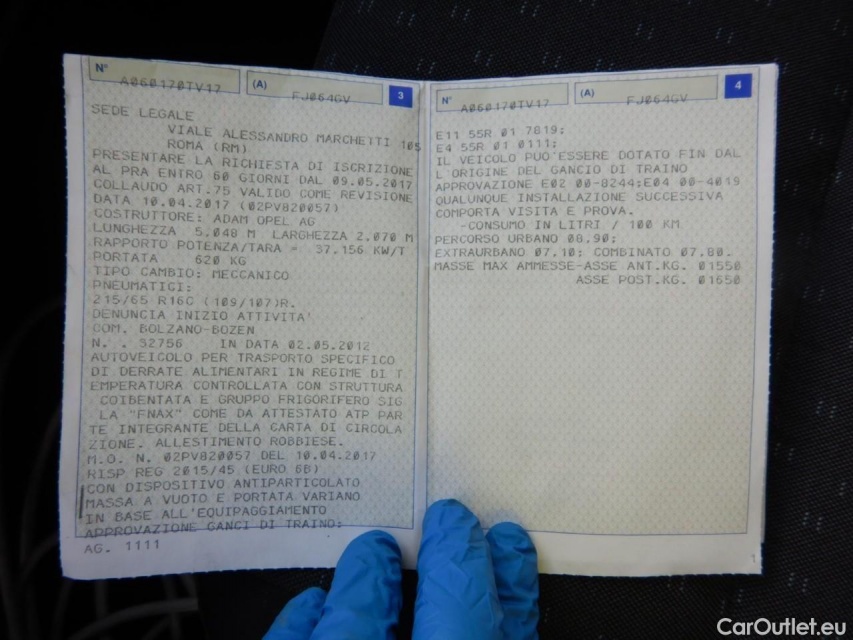 N° A060170TV17 (A) FJ064GV 3
SEDE LEGALE
VIALE ALESSANDRO MARCHETTI 105
ROMA (RM)
PRESENTARE LA RICHIESTA DI ISCRIZIONE
AL PRA ENTRO 60 GIORNI DAL 09.05.2017
COLLAUDO ART.75 VALIDO COME REVISIONE
DATA 10.04.2017 (02PV820057)
COSTRUTTORE: ADAM OPEL AG
LUNGHEZZA 5.048 M LARGHEZZA 2.070 M
RAPPORTO POTENZA/TARA = 37.156 KW/T
PORTATA 620 KG
TIPO CAMBIO: MECCANICO
PNEUMATICI:
215/65 R16C (109/107)R.
DENUNCIA INIZIO ATTIVITA'
COM. BOLZANO-BOZEN
N. . 32756 IN DATA 02.05.2012
AUTOVEICOLO PER TRASPORTO SPECIFICO
DI DERRATE ALIMENTARI IN REGIME DI T
EMPERATURA CONTROLLATA CON STRUTTURA
COIBENTATA E GRUPPO FRIGORIFERO SIG
LA "FNAX" COME DA ATTESTATO ATP PAR
TE INTEGRANTE DELLA CARTA DI CIRCOLA
ZIONE. ALLESTIMENTO ROBBIESE.
M.O. N. 02PV820057 DEL 10.04.2017
RISP REG 2015/45 (EURO 6B)
CON DISPOSITIVO ANTIPARTICOLATO
MASSA A VUOTO E PORTATA VARIANO
IN BASE ALL'EQUIPAGGIAMENTO
APPROVAZIONE GANCI DI TRAINO:
AG. 1111
N° A060170TV17 (A) FJ064GV 4
E11 55R 01 7819;
E4 55R 01 0111;
IL VEICOLO PUO'ESSERE DOTATO FIN DAL
L'ORIGINE DEL GANCIO DI TRAINO
APPROVAZIONE E02 00-8244;E04 00-4019
QUALUNQUE INSTALLAZIONE SUCCESSIVA
COMPORTA VISITA E PROVA.
-CONSUMO IN LITRI / 100 KM
PERCORSO URBANO 08.90;
EXTRAURBANO 07.10; COMBINATO 07.80.
MASSE MAX AMMESSE-ASSE ANT.KG. 01550
ASSE POST.KG. 01650
CarOutlet.eu